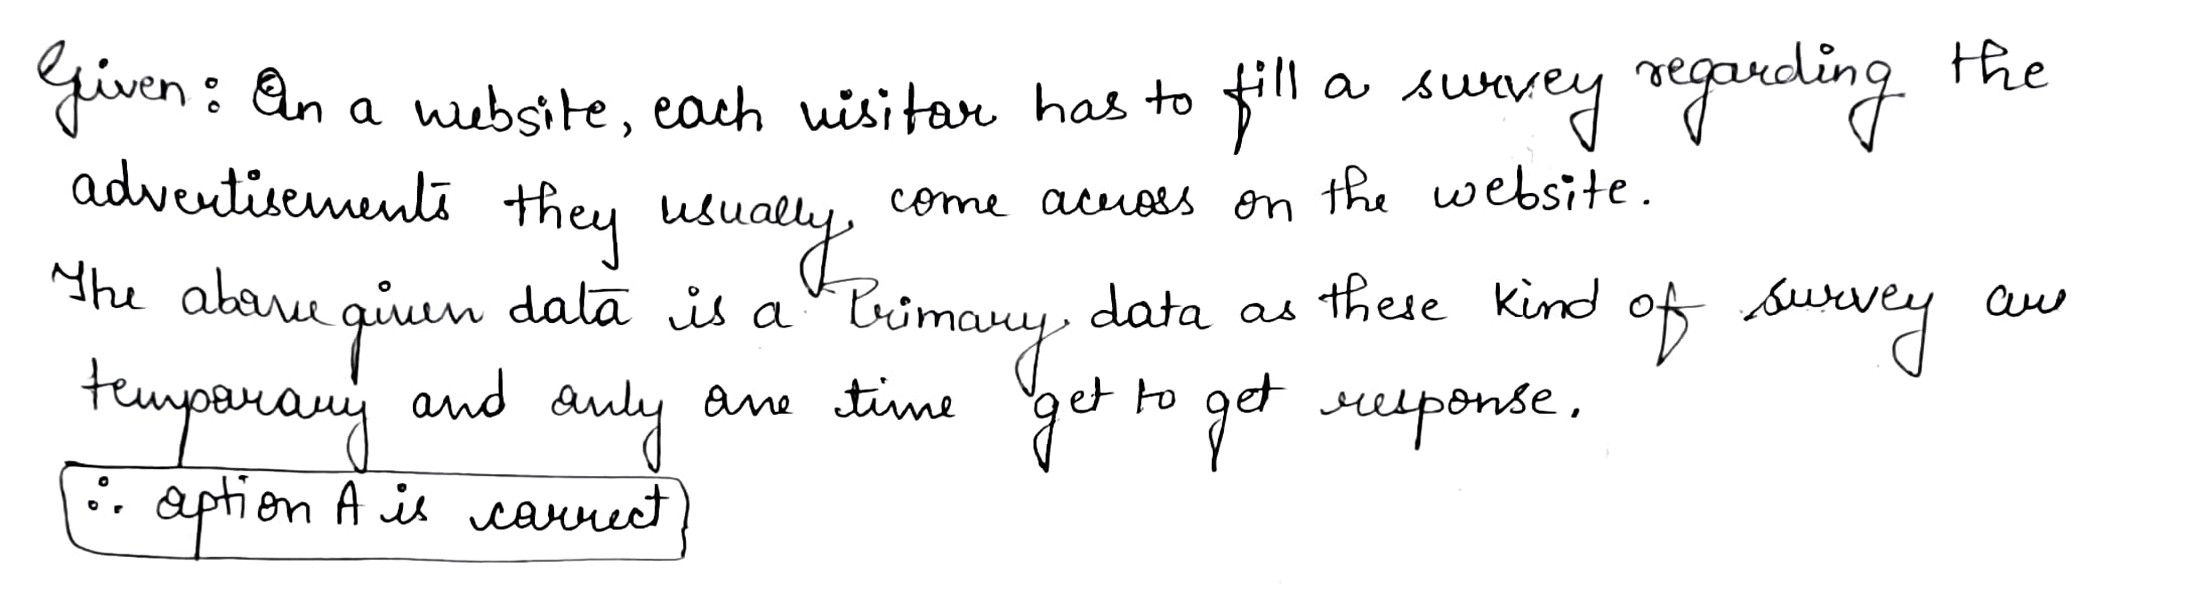 Given: On a website, each visitor has to fill a survey regarding the
advertisements they usually come across on the website.
The above given data is a Primary data as these kind of survey are
temporary and only one time get to get response.
∴ option A is correct